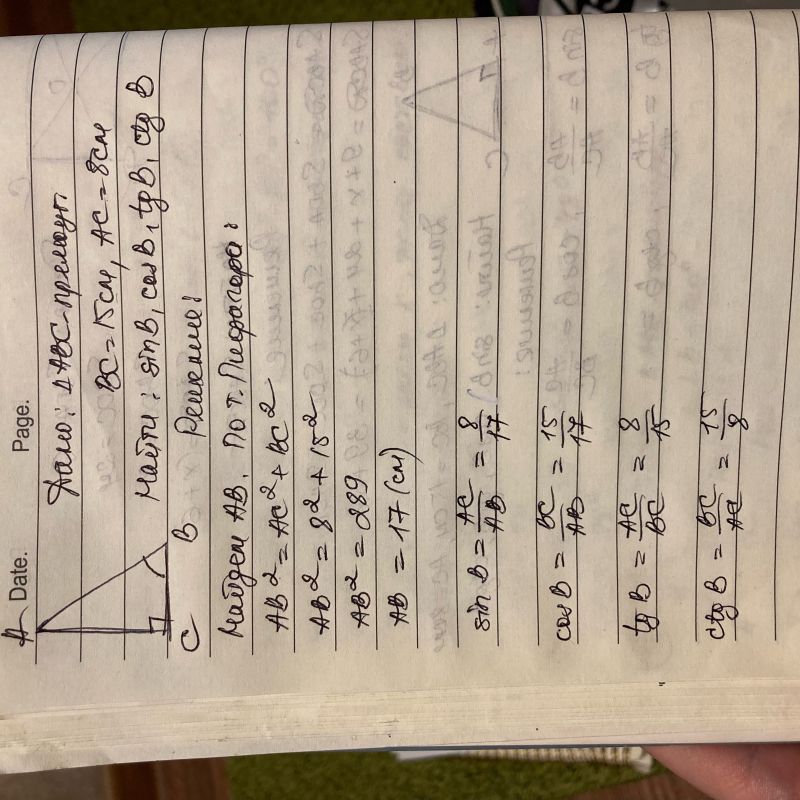 Date. Page.
A
C
B
Дано: ΔABC-прямоуг.
BC=15см, AC=8см
Найти: sinB, cosB, tgB, ctgB
Решение:
Найдем AB. По т. Пифагора:
AB²=AC²+BC²
AB²=8²+15²
AB²=289
AB=17(см)
sin B = AC/AB = 8/17
cosB = BC/AB = 15/17
tg B = AC/BC = 8/15
ctg B = BC/AC = 15/8